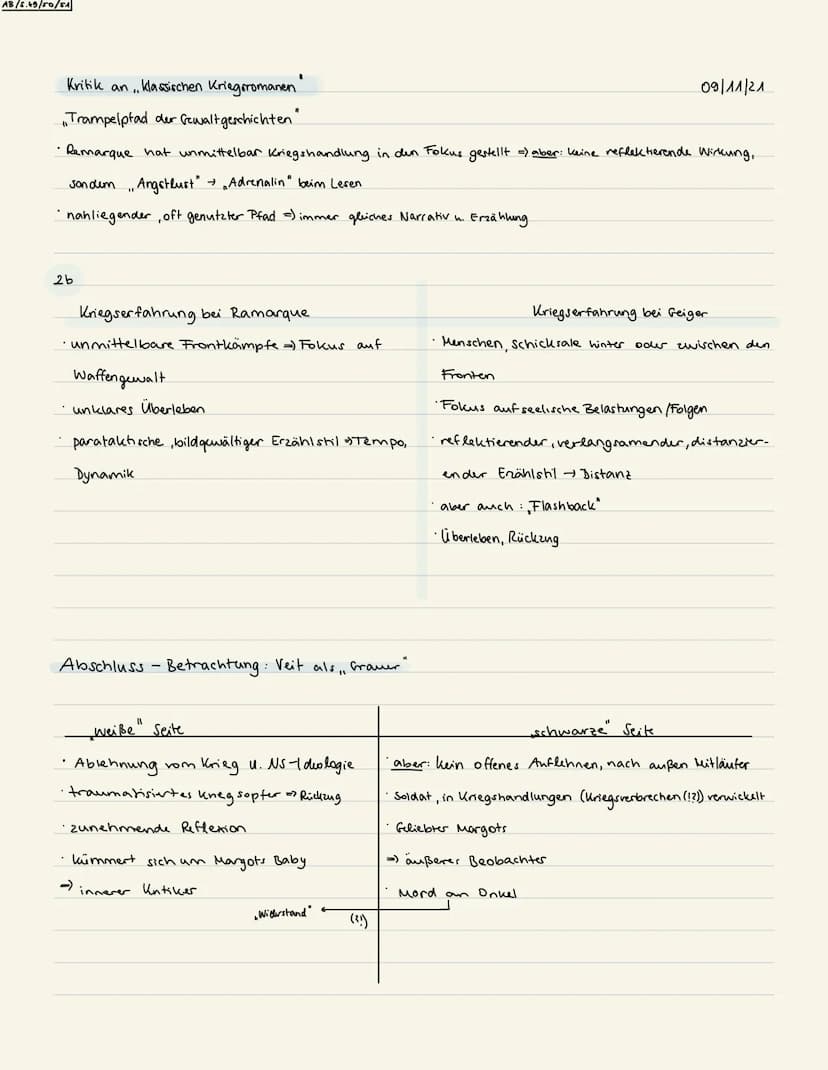 AB/S.49/50/51
Kritik an „klassischen Kriegsromanen"
09/11/21
„Trampelpfad der Gewaltgeschichten"
· Remarque hat unmittelbar Kriegshandlung in den Fokus gestellt => aber: keine reflektierende Wirkung,
sondern „Angstlust" → „Adrenalin" beim Lesen
· nahliegender, oft genutzter Pfad => immer gleiches Narrativ u. Erzählung
2b
Kriegserfahrung bei Ramarque
· unmittelbare Frontkämpfe => Fokus auf
Waffengewalt
· unklares Überleben
· parataktische, bildgewältiger Erzählstil => Tempo,
Dynamik
Kriegserfahrung bei Geiger
· Menschen, Schicksale hinter oder zwischen den
Fronten
· Fokus auf seelische Belastungen/Folgen
· reflektierender, verlangsamender, distanzier-
ender Erzählstil → Distanz
· aber auch: „Flashback"
· Überleben, Rückzug
Abschluss - Betrachtung: Veit als „Grauer"
„weiße" Seite
· Ablehnung vom Krieg u. NS-Ideologie
· traumatisiertes Kriegsopfer => Rückzug
· zunehmende Reflexion
· kümmert sich um Margots Baby
=> innerer Kritiker
„schwarze" Seite
· aber: kein offenes Auflehnen, nach außen Mitläufer
· Soldat, in Kriegshandlungen (Kriegsverbrechen (!?)) verwickelt
· Geliebter Margots
=> äußerer Beobachter
· Mord an Onkel
„Widerstand" ← (?!)